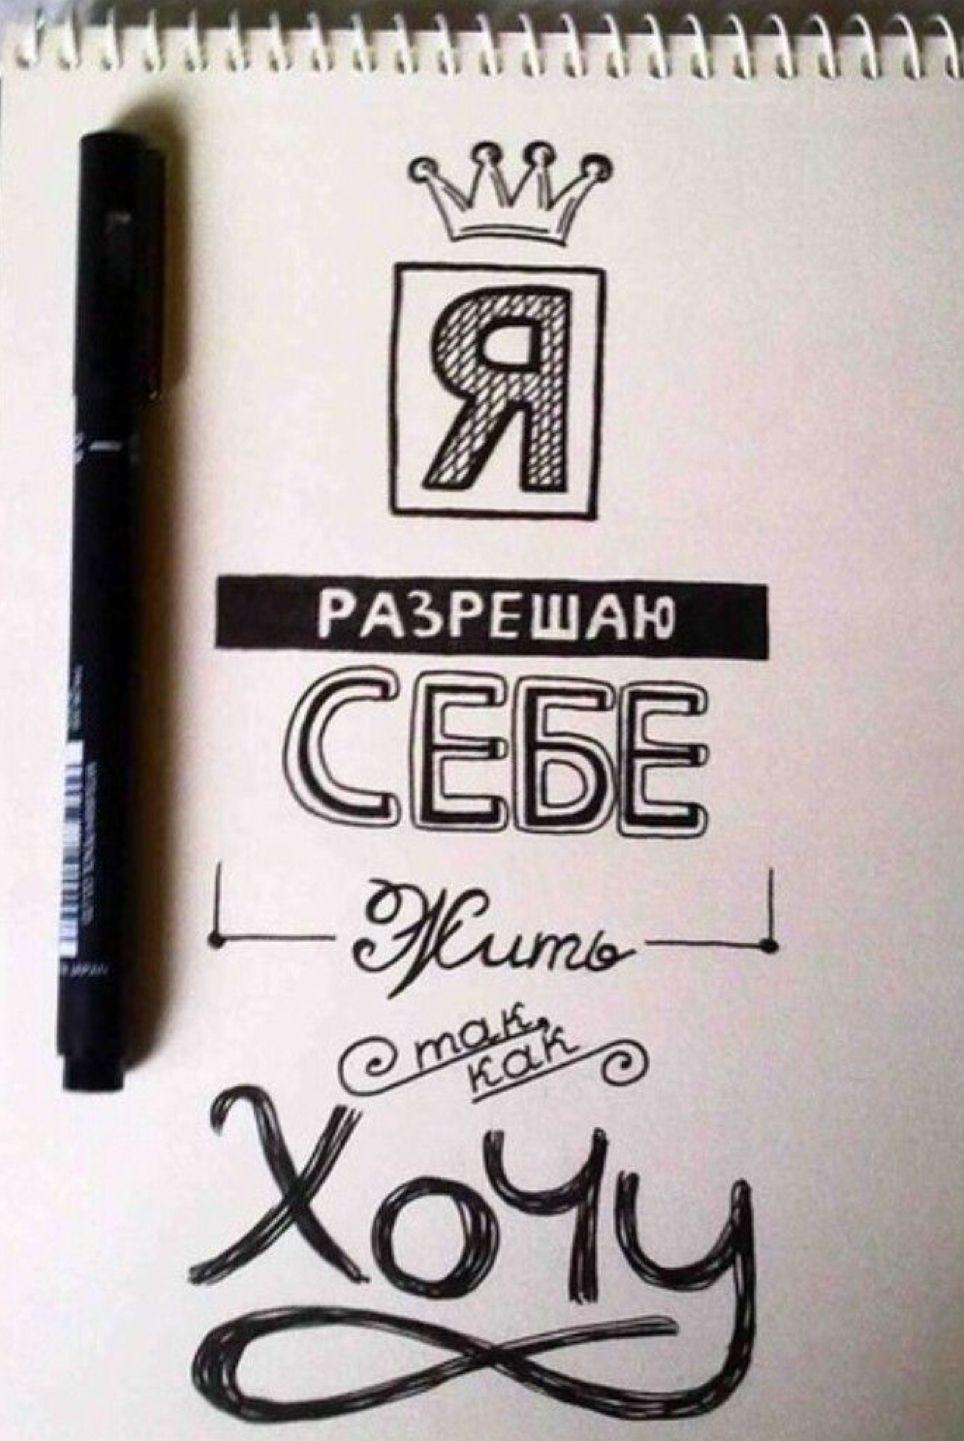 Я
РАЗРЕШАЮ
СЕБЕ
Жить
так,
как
Хочу